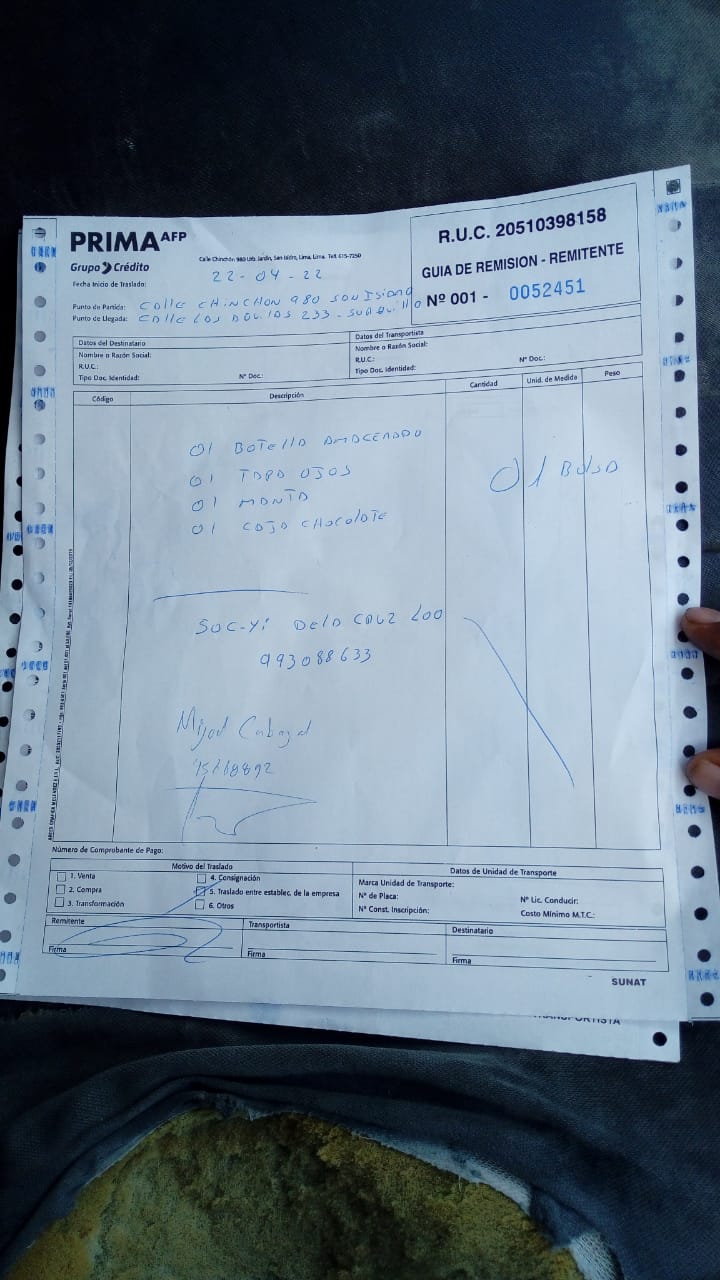 PRIMA AFP
Grupo Crédito
Calle Chinchón 980 Urb. Jardín, San Isidro, Lima, Lima. Telf. 615-7250
R.U.C. 20510398158
GUIA DE REMISION - REMITENTE
Nº 001 - 0052451
Fecha Inicio de Traslado: 22-04-22
Punto de Partida: CALLE CHINCHON 980 SAN ISIDRO
Punto de Llegada: CALLE LOS AGUILAS 233 - SURQUILLO
Datos del Destinatario
Nombre o Razón Social:
R.U.C.:
Tipo Doc. Identidad: Nº Doc.:
Datos del Transportista
Nombre o Razón Social:
R.U.C.: Nº Doc.:
Tipo Doc. Identidad:
Código Descripción Cantidad Unid. de Medida Peso
01 BOTELLA
01 TAPA OJOS
01 MANTA
01 CAJA CHOCOLATE
01 BOLSA
SOC-YI DELA CRUZ LOO
993088633
Número de Comprobante de Pago:
Motivo del Traslado
1. Venta
2. Compra
3. Transformación
4. Consignación
5. Traslado entre establec. de la empresa
6. Otros
Datos de Unidad de Transporte
Marca Unidad de Transporte:
Nº de Placa: Nº Lic. Conducir:
Nº Const. Inscripción: Costo Mínimo M.T.C.:
Remitente
Firma
Transportista
Firma
Destinatario
Firma
SUNAT
TRANSPORTISTA